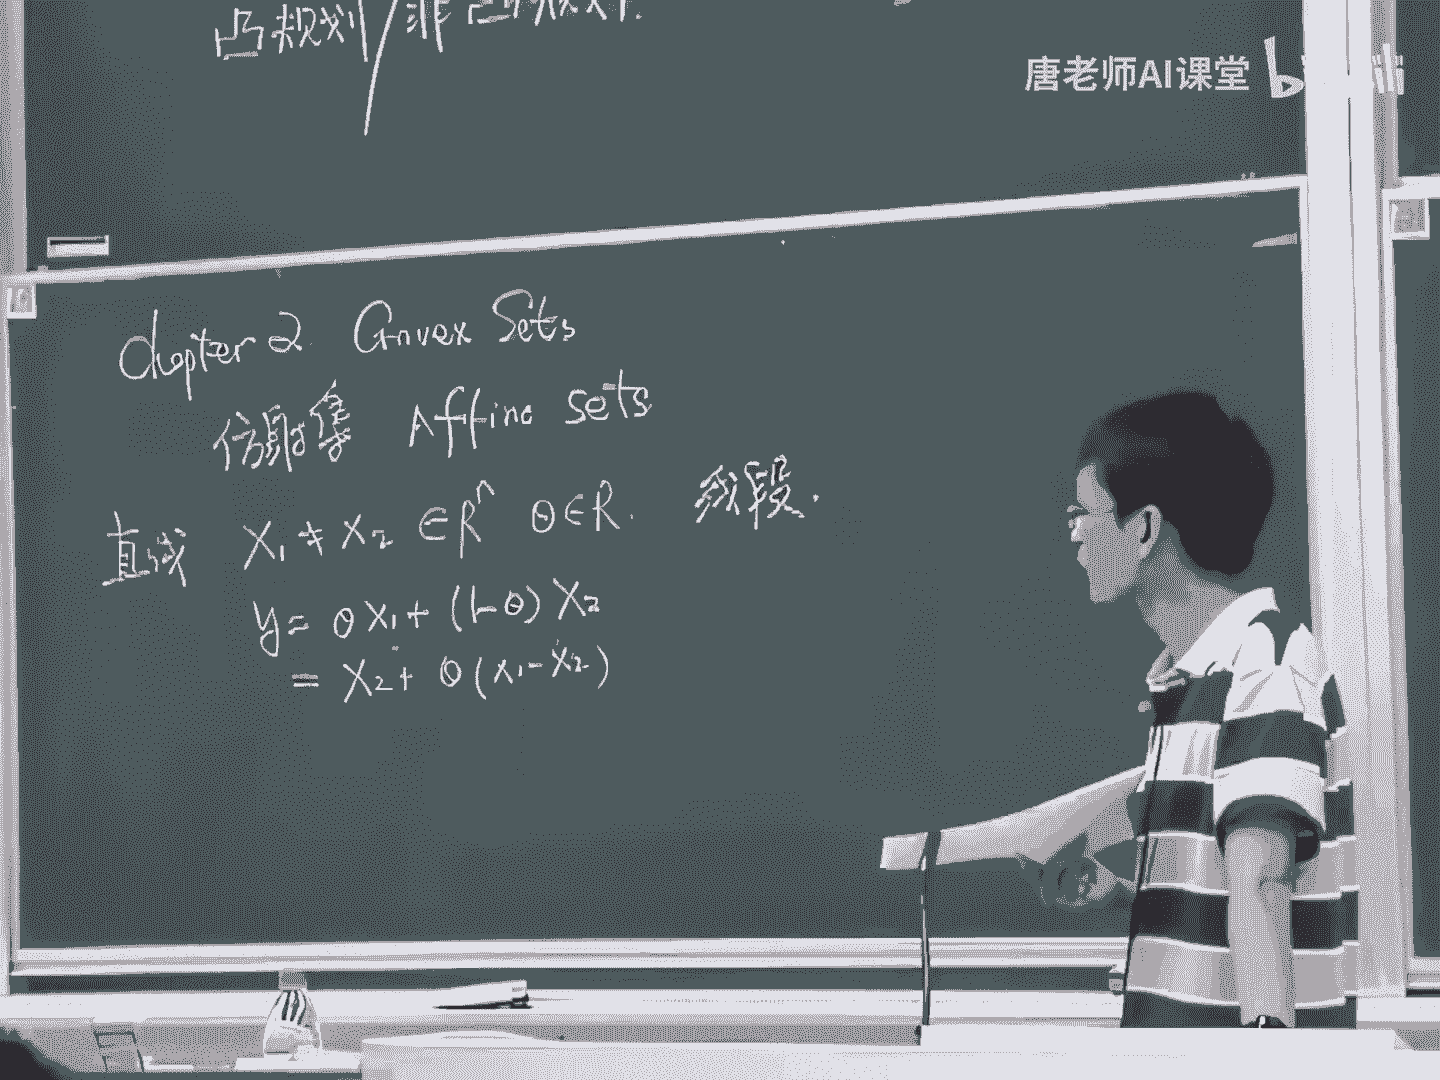 凸规划/非凸规划.
唐老师AI课堂 bilibili
Chapter 2 Convex Sets
仿射集 Affine sets
直线 X₁ ≠ X₂ ∈ Rⁿ θ∈R. 线段.
y = θX₁ + (1-θ)X₂
= X₂ + θ(X₁-X₂)